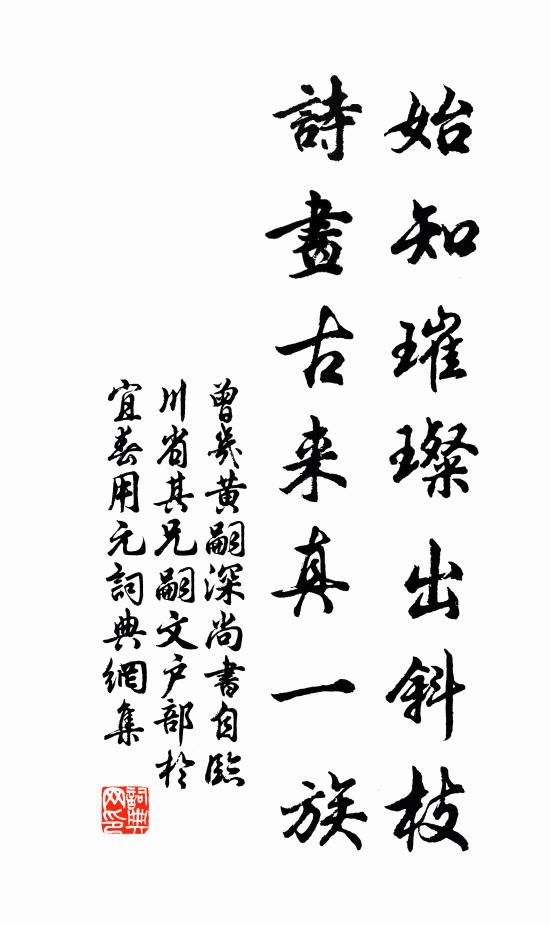 始知璀璨出斜枝
詩畫古来真一族
曾幾黃嗣深尚書自臨
川省其兄嗣文户部於
宜春用元詞典網集
詞典
网印